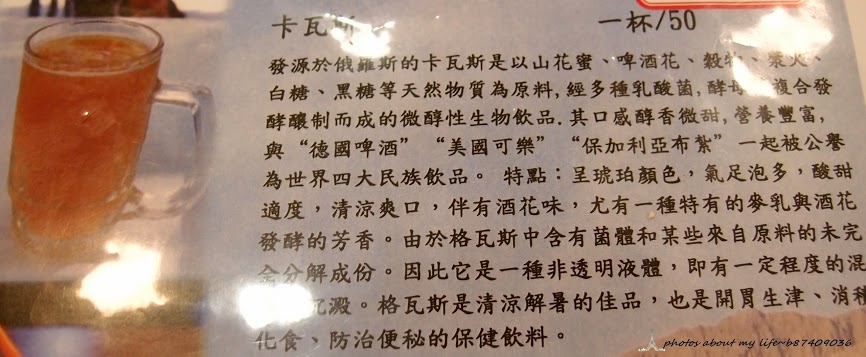 卡瓦斯 一杯/50
發源於俄羅斯的卡瓦斯是以山花蜜、啤酒花、穀物、漿
白糖、黑糖等天然物質為原料,經多種乳酸菌,酵母 複合發
酵釀制而成的微醇性生物飲品.其口感醇香微甜,營養豐富,
與“德國啤酒”“美國可樂”“保加利亞布紮”一起被公譽
為世界四大民族飲品。 特點:呈琥珀顏色,氣足泡多,酸甜
適度,清涼爽口,伴有酒花味,尤有一種特有的麥乳與酒花
發酵的芳香。由於格瓦斯中含有菌體和某些來自原料的未完
全分解成份。因此它是一種非透明液體,即有一定程度的混
沉澱。格瓦斯是清涼解暑的佳品,也是開胃生津、消積
化食、防治便秘的保健飲料。
photos about my life~b87409036